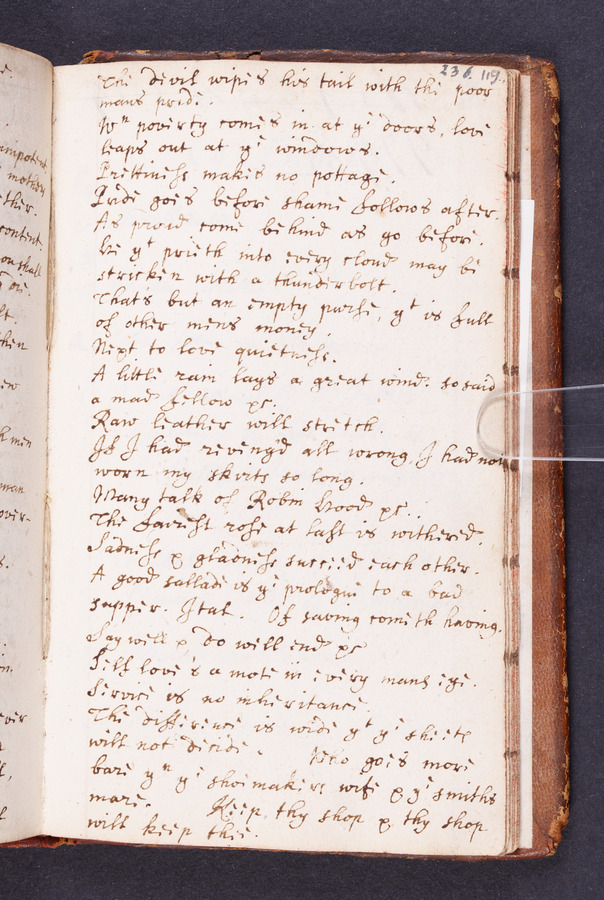 236. 119.
The devil wipes his tail with the poor
mans pride.
Wn poverty comes in at ye doors, love
leaps out at ye windows.
Prettiness makes no pottage.
Pride goes before shame follows after.
As proud come behind as go before.
He yt prieth into every cloud may be
stricken with a thunderbolt.
That's but an empty purse, yt is full
of other mens money.
Next to love quietness.
A little rain lays a great wind. so said
a mad fellow &c.
Raw leather will stretch.
If I had reveng'd all wrong, I had not
worn my skirts so long.
Many talk of Robin Hood &c.
The fairest rose at last is withered.
Sadness & gladness succeed each other.
A good sallade is ye prologue to a bad
supper. Ital. Of saving cometh having.
Say well & do well end &c
Self love's a mote in every mans eye.
Service is no inheritance.
The difference is wide yt ye sheets
will not decide. Who goes more
bare yn ye shoemakers wife & ye smiths
mare. Keep thy shop & thy shop
will keep thee.
mother
ther.
content
shall
men
man
over-
ever